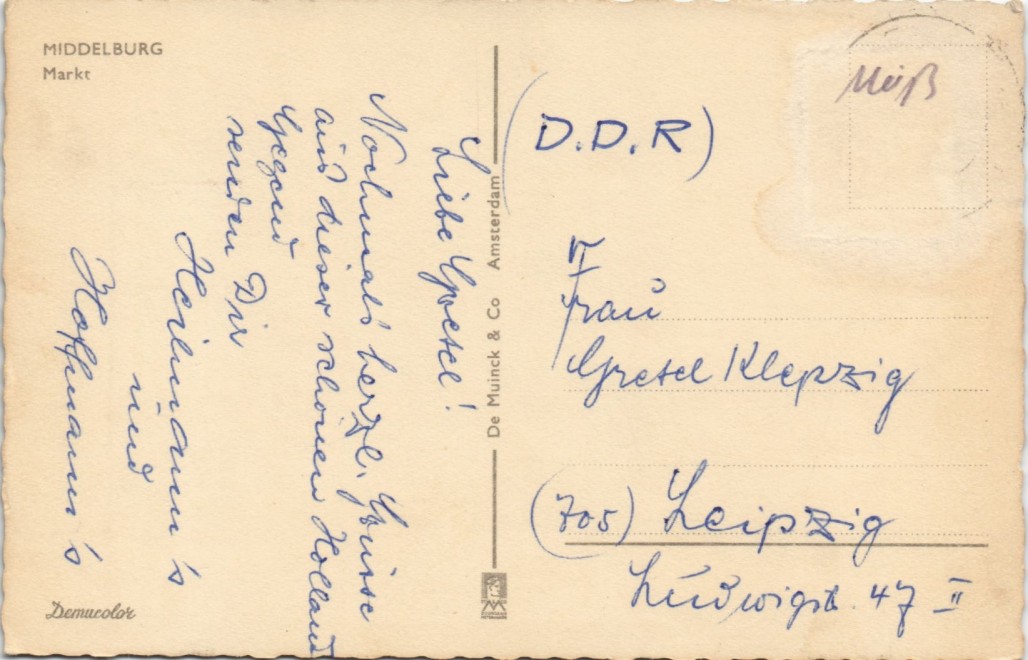 MIDDELBURG
Markt
Liebe Gretel!
Nochmals herzl. Grüsse
aus dieser schönen Holland
Gegend
senden Dir
Heilmann's
und
Hoffmann's
De Muinck & Co Amsterdam
Demucolor
(D.D.R)
Frau
Gretel Klepzig
(705) Leipzig
Ludwigstr. 47 II